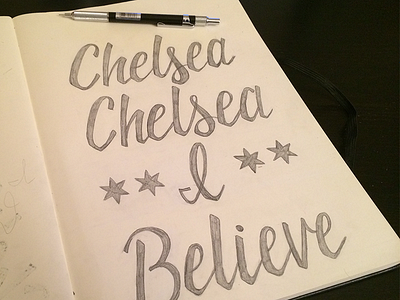 Chelsea
Chelsea
I
Believe